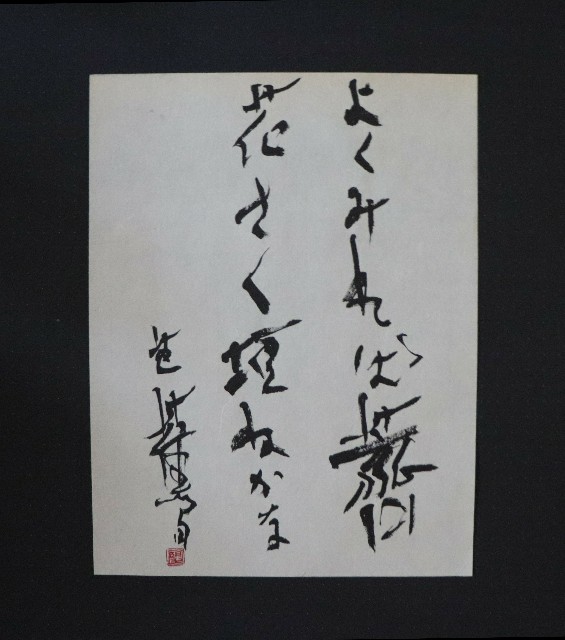 よくみれば薺
花さく垣ねかな
芭蕉